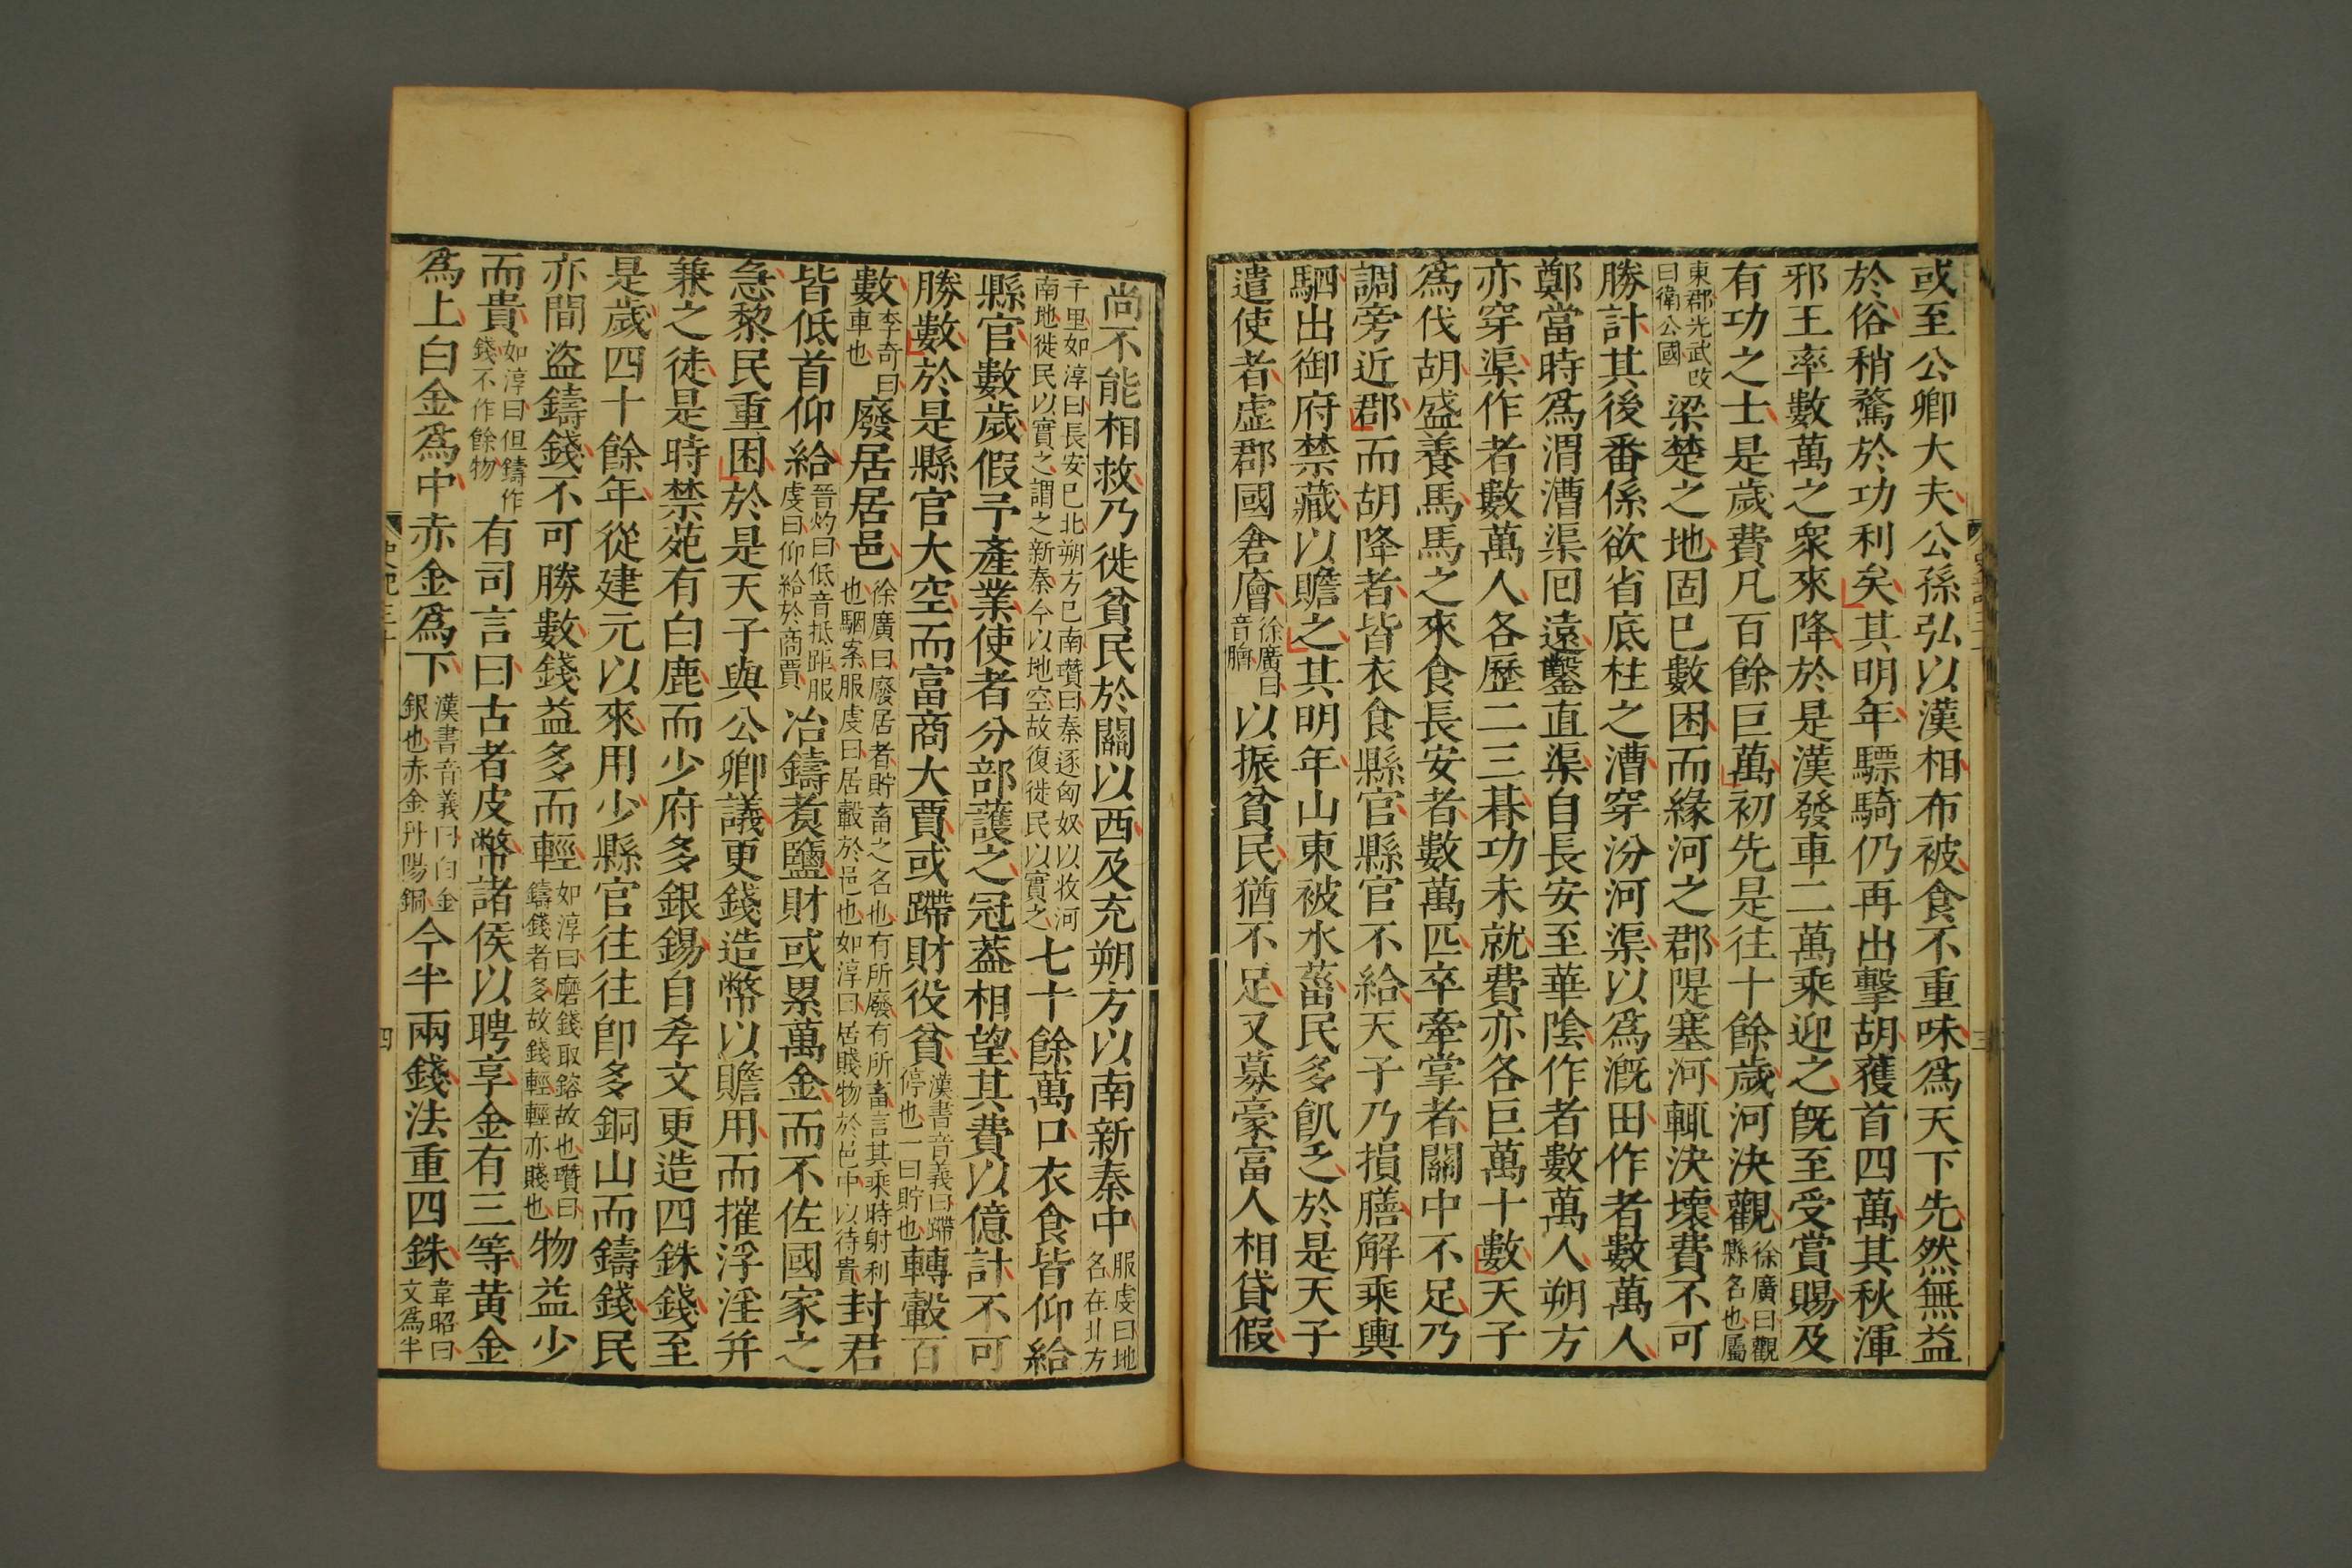 或至公卿大夫公孫弘以漢相布被食不重味爲天下先然無益
於俗稍騖於功利矣其明年驃騎仍再出擊胡獲首四萬其秋渾
邪王率數萬之衆來降於是漢發車二萬乘迎之旣至受賞賜及
有功之士是歲費凡百餘巨萬初先是往十餘歲河決觀徐廣曰觀縣名也屬
東郡光武改曰衛公國梁楚之地固已數困而緣河之郡隄塞河輒決壞費不可
勝計其後番係欲省底柱之漕穿汾河渠以爲漑田作者數萬人
鄭當時爲渭漕渠回遠鑿直渠自長安至華陰作者數萬人朔方
亦穿渠作者數萬人各歷二三朞功未就費亦各巨萬十數天子
爲伐胡盛養馬馬之來食長安者數萬匹卒牽掌者關中不足乃
調旁近郡而胡降者皆衣食縣官縣官不給天子乃損膳解乘輿
駟出御府禁藏以贍之其明年山東被水菑民多飢乏於是天子
遣使者虛郡國倉廥徐廣曰音膾以振貧民猶不足又募豪富人相貸假
尚不能相救乃徙貧民於關以西及充朔方以南新秦中服虔曰地名在北方
千里如淳曰長安已北朔方已南瓚曰秦逐匈奴以收河南地徙民以實之謂之新秦今以地空故復徙民以實之七十餘萬口衣食皆仰給
縣官數歲假予產業使者分部護之冠蓋相望其費以億計不可
勝數於是縣官大空而富商大賈或蹛財役貧漢書音義曰蹛停也一曰貯也轉轂百
數李奇曰車也廢居居邑徐廣曰廢居者貯畜之名也有所廢有所畜言其乘時射利也駰案服虔曰居轂於邑也如淳曰居賤物於邑中以待貴封君
皆低首仰給晉灼曰低音抵距服虔曰仰給於商賈冶鑄煑鹽財或累萬金而不佐國家之
急黎民重困於是天子與公卿議更錢造幣以贍用而摧浮淫并
兼之徒是時禁苑有白鹿而少府多銀錫自孝文更造四銖錢至
是歲四十餘年從建元以來用少縣官往往卽多銅山而鑄錢民
亦間盜鑄錢不可勝數錢益多而輕如淳曰磨錢取鎔故也瓚曰鑄錢者多故錢輕輕亦賤也物益少
而貴如淳曰但鑄作錢不作餘物有司言曰古者皮幣諸侯以聘享金有三等黃金
爲上白金爲中赤金爲下漢書音義曰白金銀也赤金丹陽銅今半兩錢法重四銖韋昭曰文爲半
四